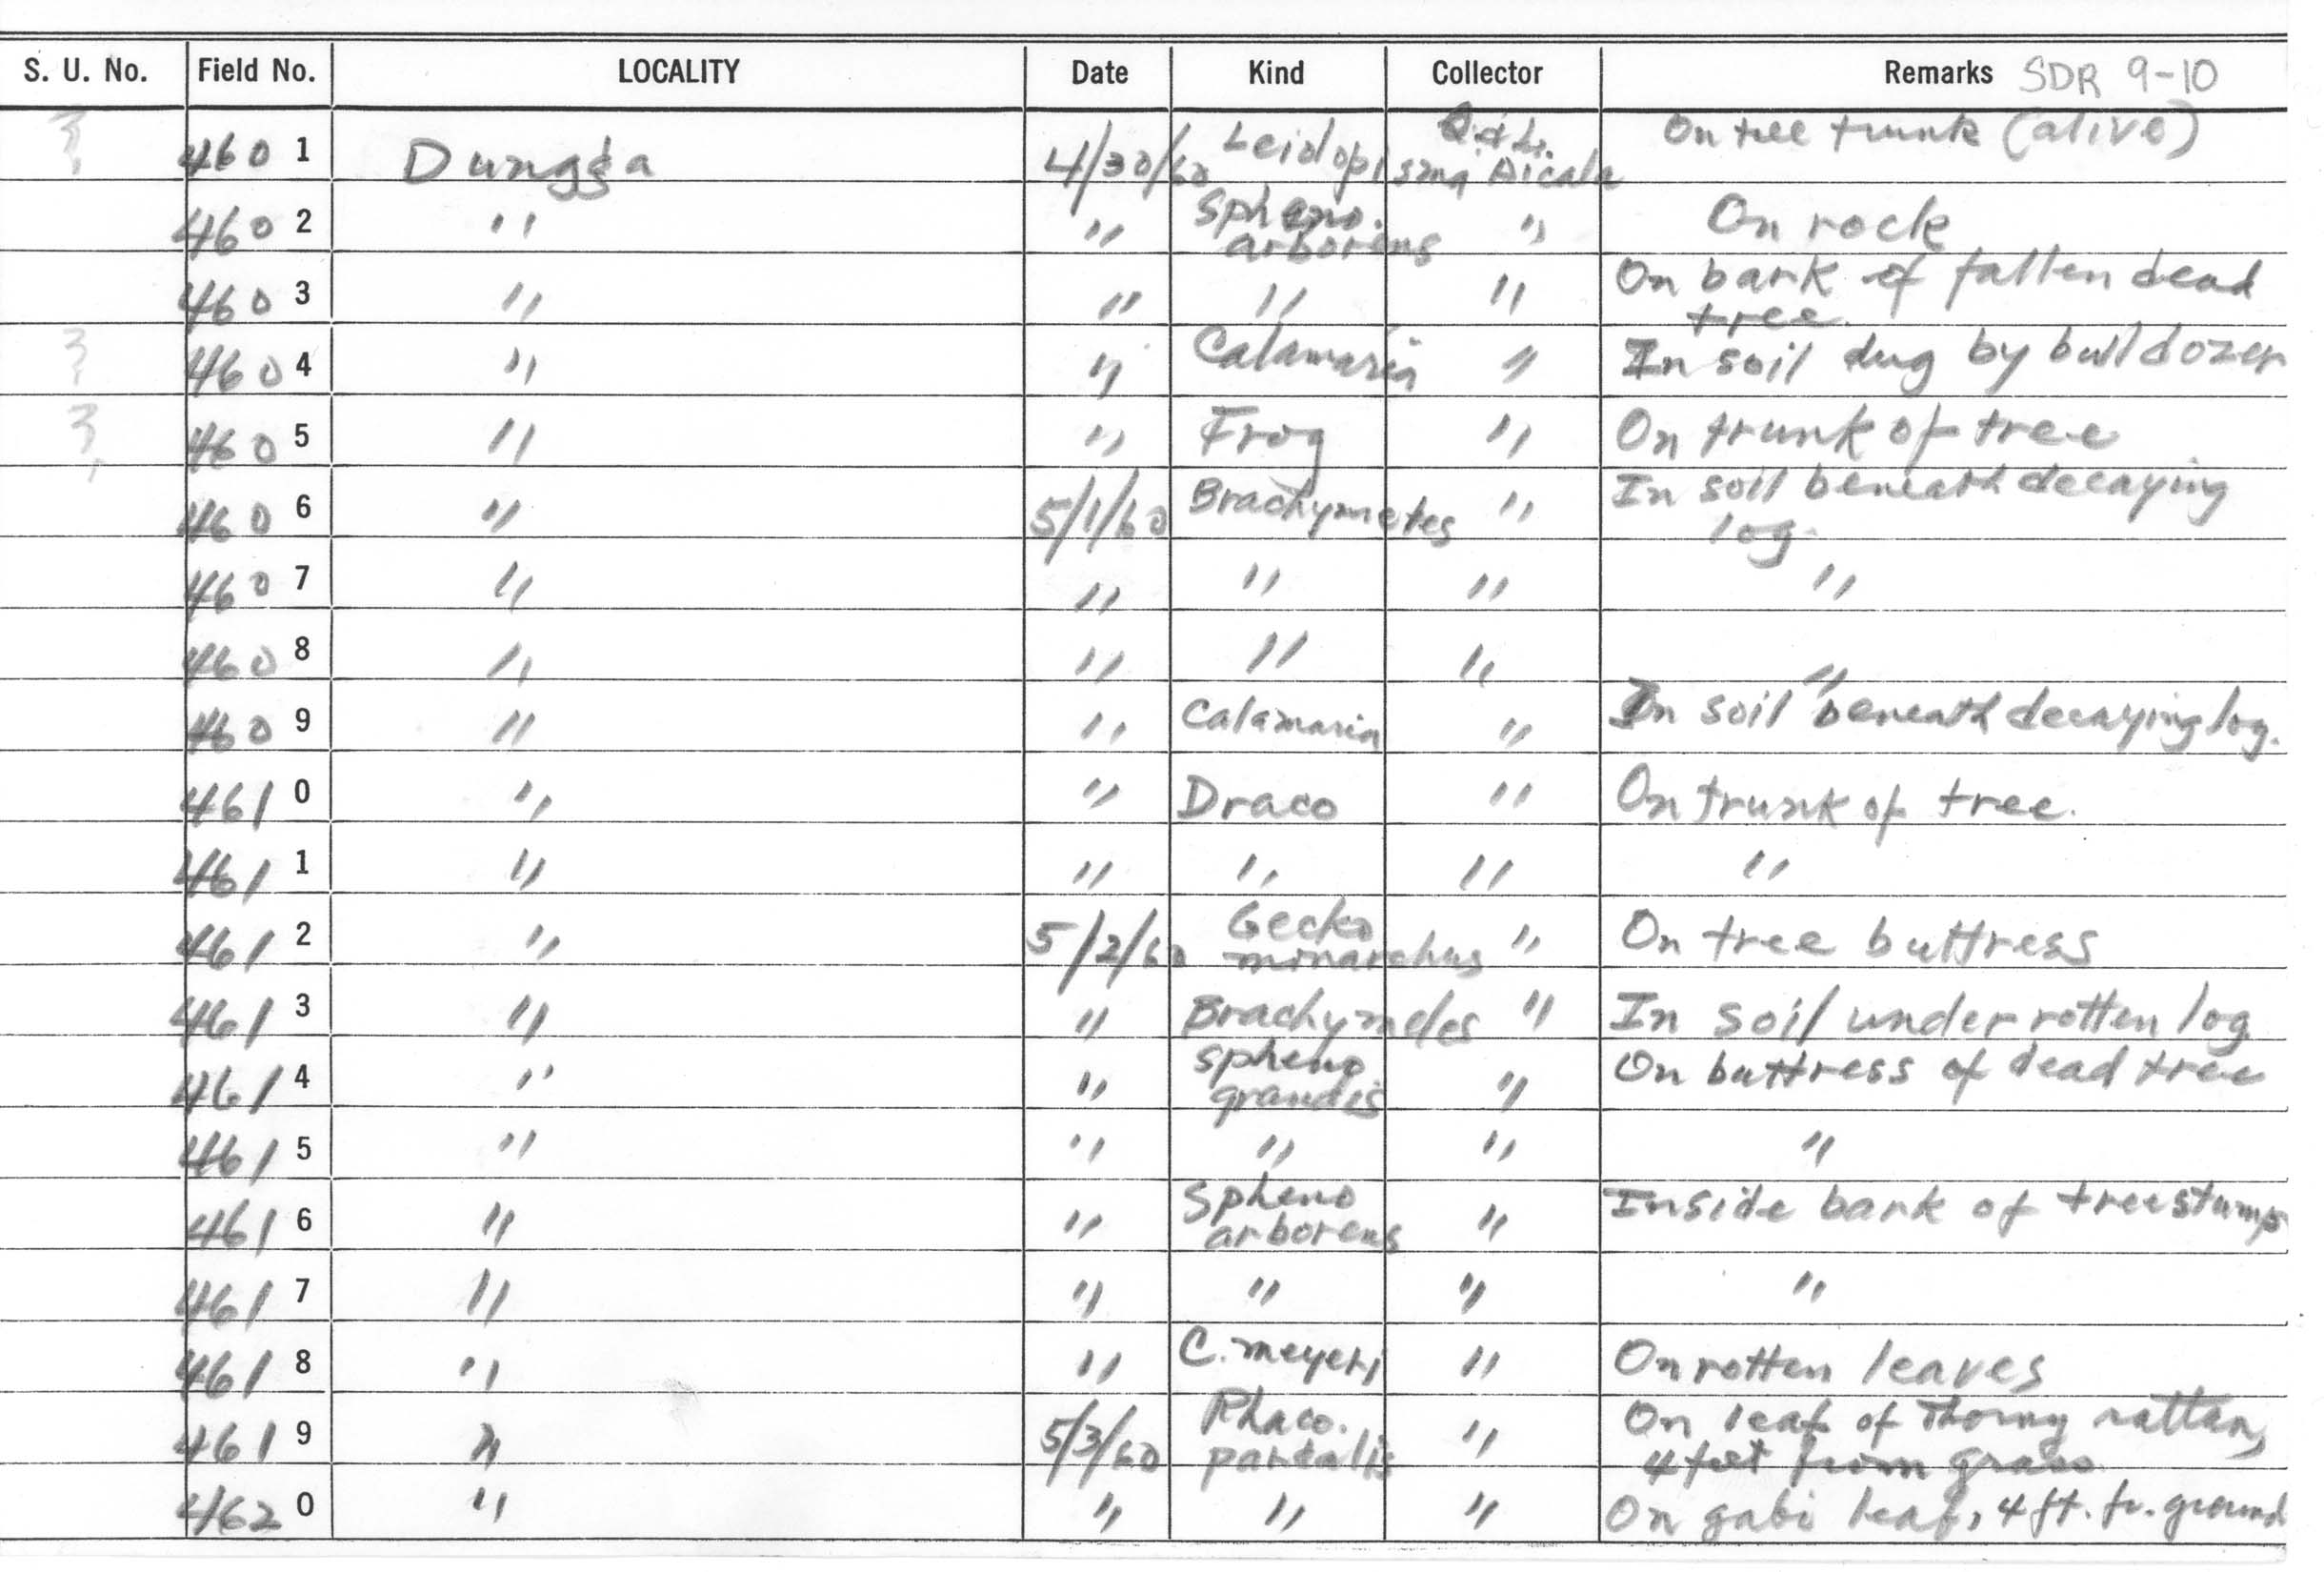 S. U. No. Field No. LOCALITY Date Kind Collector Remarks SDR 9-10
4601 Dungga 4/30/60 Leiolopisma Q. & L. Alcala On tree trunk (alive)
4602 " " Spheno. arborens " On rock
4603 " " " " On bark of fallen dead
tree.
4604 " " Calamaria " In soil dug by bulldozer
4605 " " Frog " On trunk of tree
4606 " 5/1/60 Brachymeles " In soil beneath decaying
log.
4607 " " " " "
4608 " " " " "
4609 " " Calamaria " In soil beneath decaying log.
4610 " " Draco " On trunk of tree.
4611 " " " " "
4612 " 5/2/60 Gecko monarchus " On tree buttress
4613 " " Brachymeles " In soil under rotten log
4614 " " Spheno grandis " On buttress of dead tree
4615 " " " " "
4616 " " Spheno arborens " Inside bark of tree stump
4617 " " " " "
4618 " " C. meyeri " On rotten leaves
4619 " 5/3/60 Rhaco. pardalis " On leaf of thorny rattan,
4 feet from grass
4620 " " " " On gabi leaf, 4 ft. fr. ground